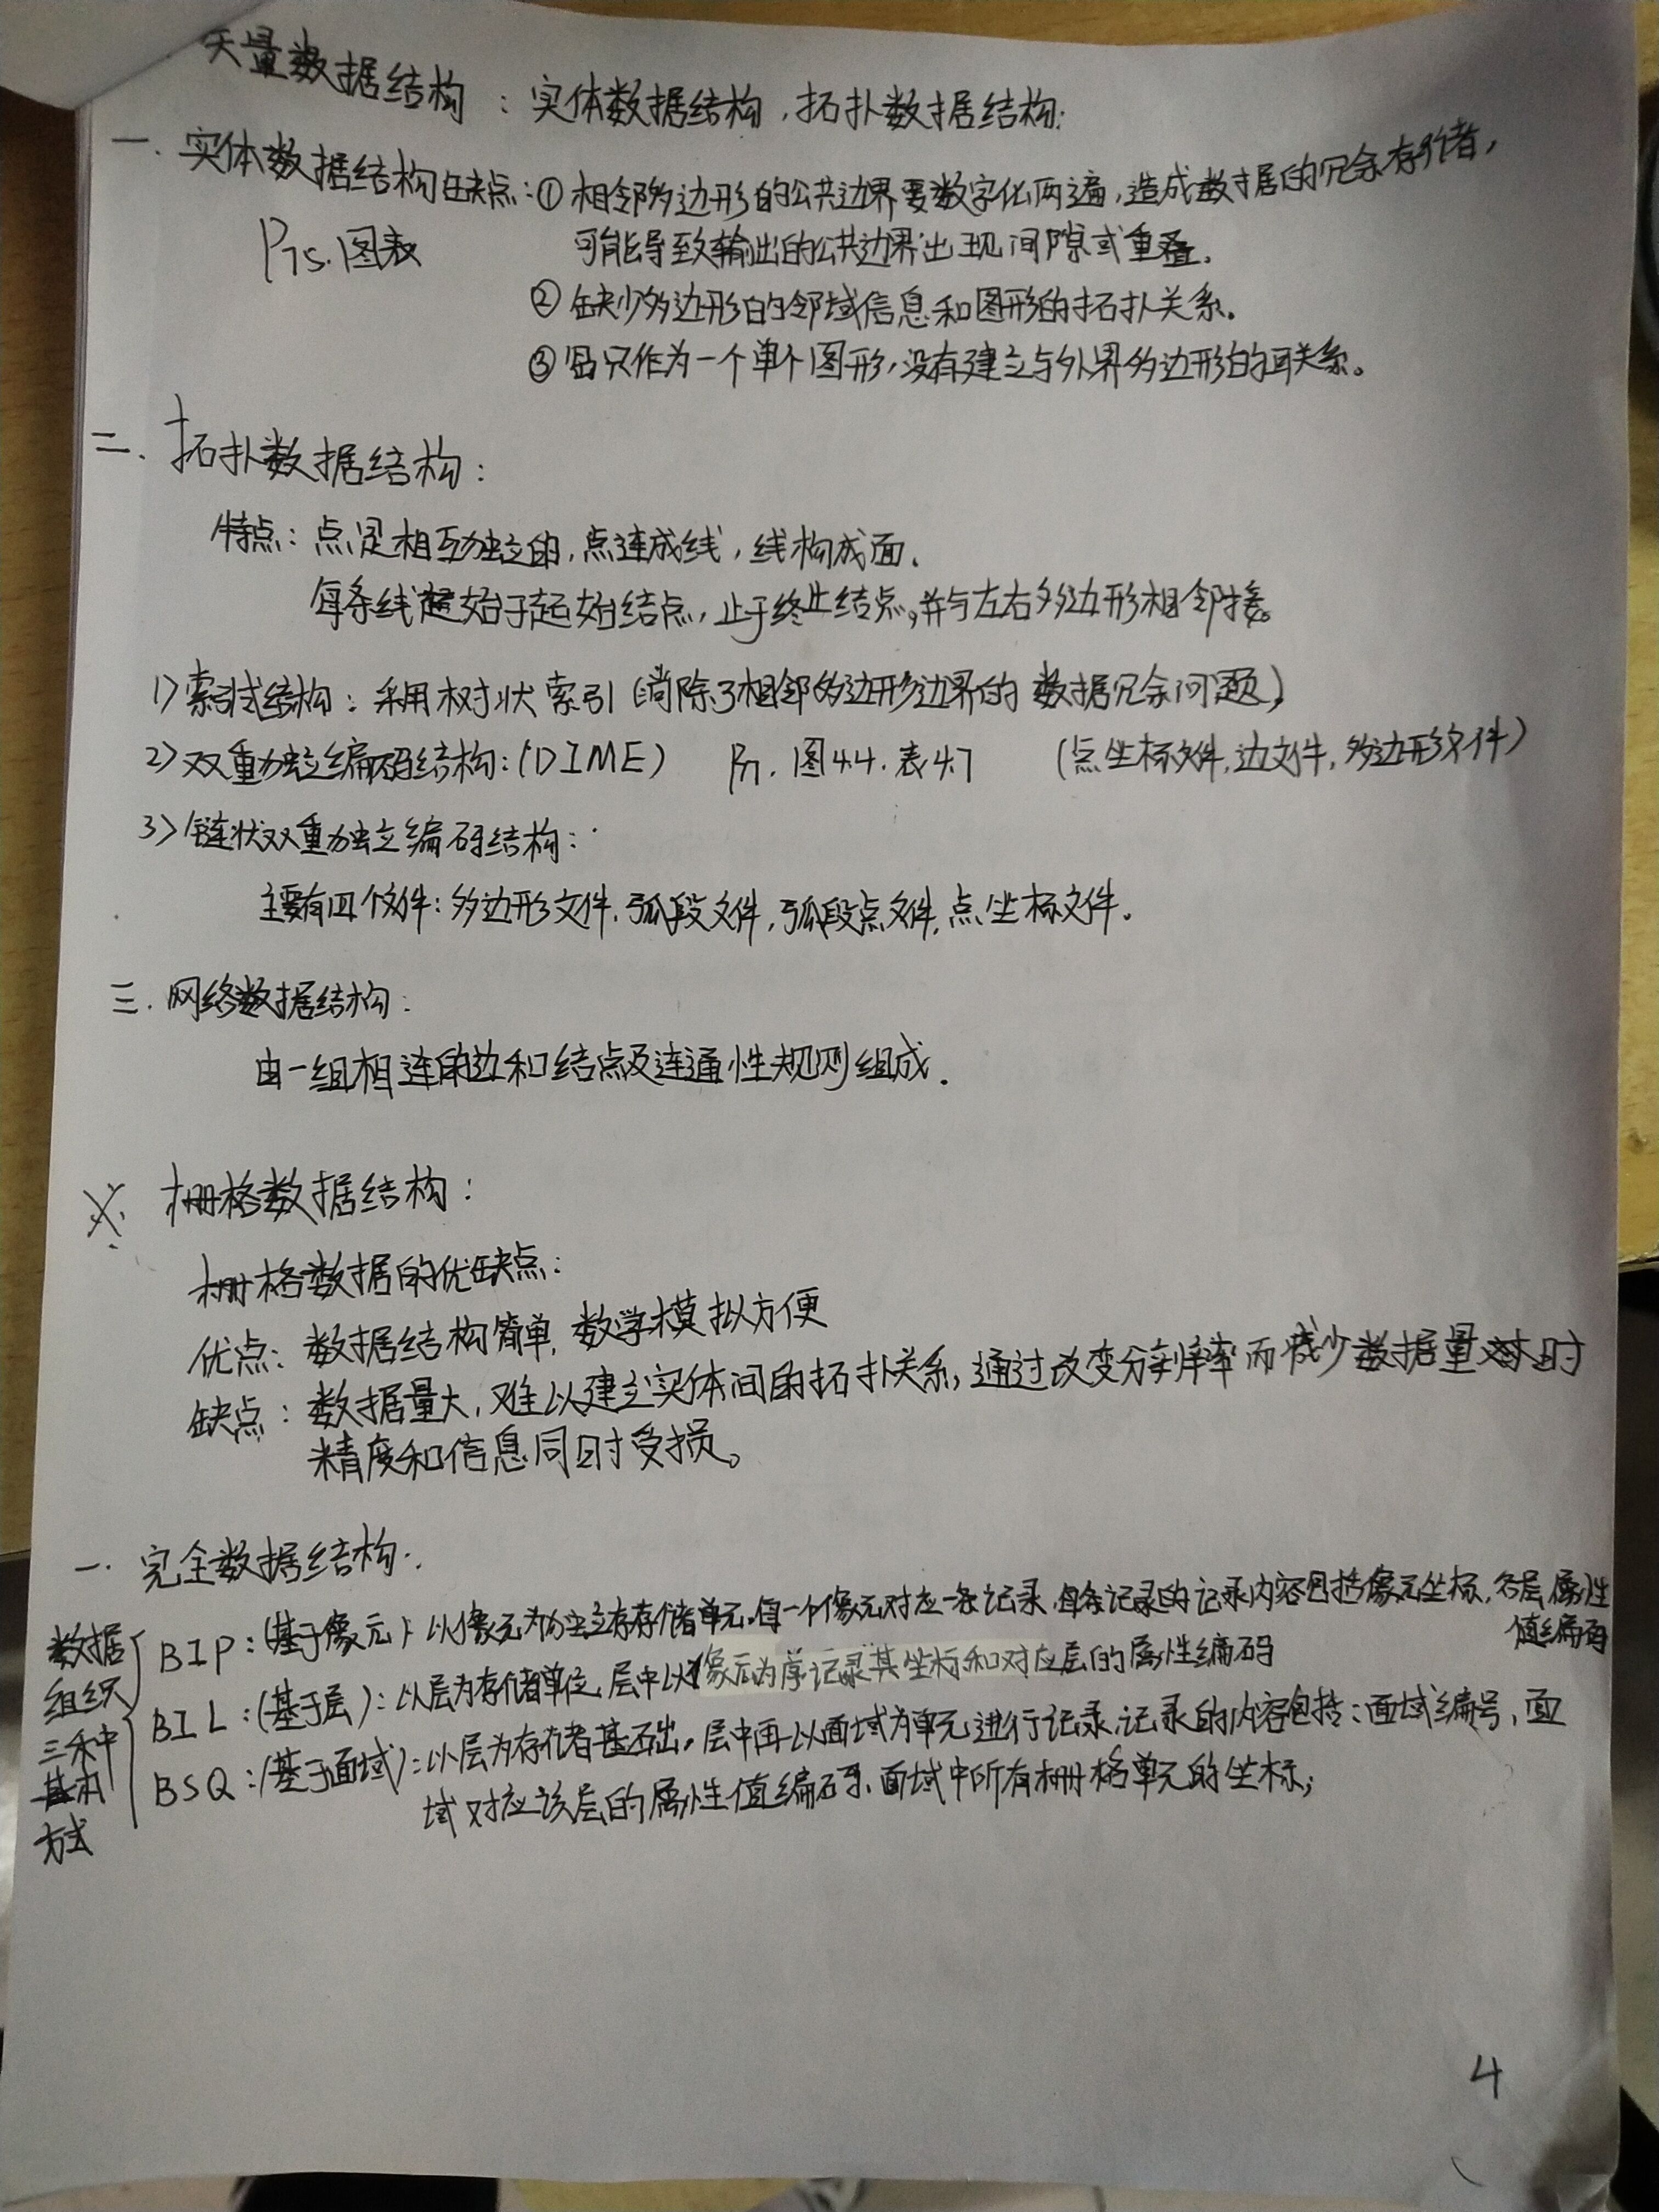 矢量数据结构：实体数据结构，拓扑数据结构：
一. 实体数据结构缺点：① 相邻多边形的公共边界要数字化两遍，造成数据的冗余存储，
可能导致输出的公共边界出现间隙或重叠。
P75.图表
② 缺少多边形的邻域信息和图形的拓扑关系。
③ 只作为一个单个图形，没有建立与外界多边形的关系。
二. 拓扑数据结构：
特点：点是相互独立的，点连成线，线构成面。
每条线起始于起始结点，止于终止结点，并与左右多边形相邻接。
1) 索引式结构：采用树状索引（消除了相邻多边形边界的数据冗余问题）
2) 双重独立编码结构：(DIME) P77. 图4.4. 表4.7 （点坐标文件，边文件，多边形文件）
3) 链状双重独立编码结构：
主要有四个文件：多边形文件，弧段文件，弧段点文件，点坐标文件。
三. 网络数据结构：
由一组相连的边和结点及连通性规则组成.
※ 栅格数据结构：
栅格数据的优缺点：
优点：数据结构简单，数学模拟方便
缺点：数据量大，难以建立实体间的拓扑关系，通过改变分辨率而减少数据量时
精度和信息同时受损。
一. 完全数据结构：
数据组织三种基本方式
BIP：(基于像元)：以像元为独立存储单元，每一个像元对应一条记录，每条记录的记录内容包括像元坐标，各层属性
值编码
BIL：(基于层)：以层为存储单位，层中以像元为序记录其坐标和对应层的属性编码
BSQ：(基于面域)：以层为存储基础，层中再以面域为单元进行记录，记录的内容包括：面域编号，面
域对应该层的属性值编码、面域中所有栅格单元的坐标；
4